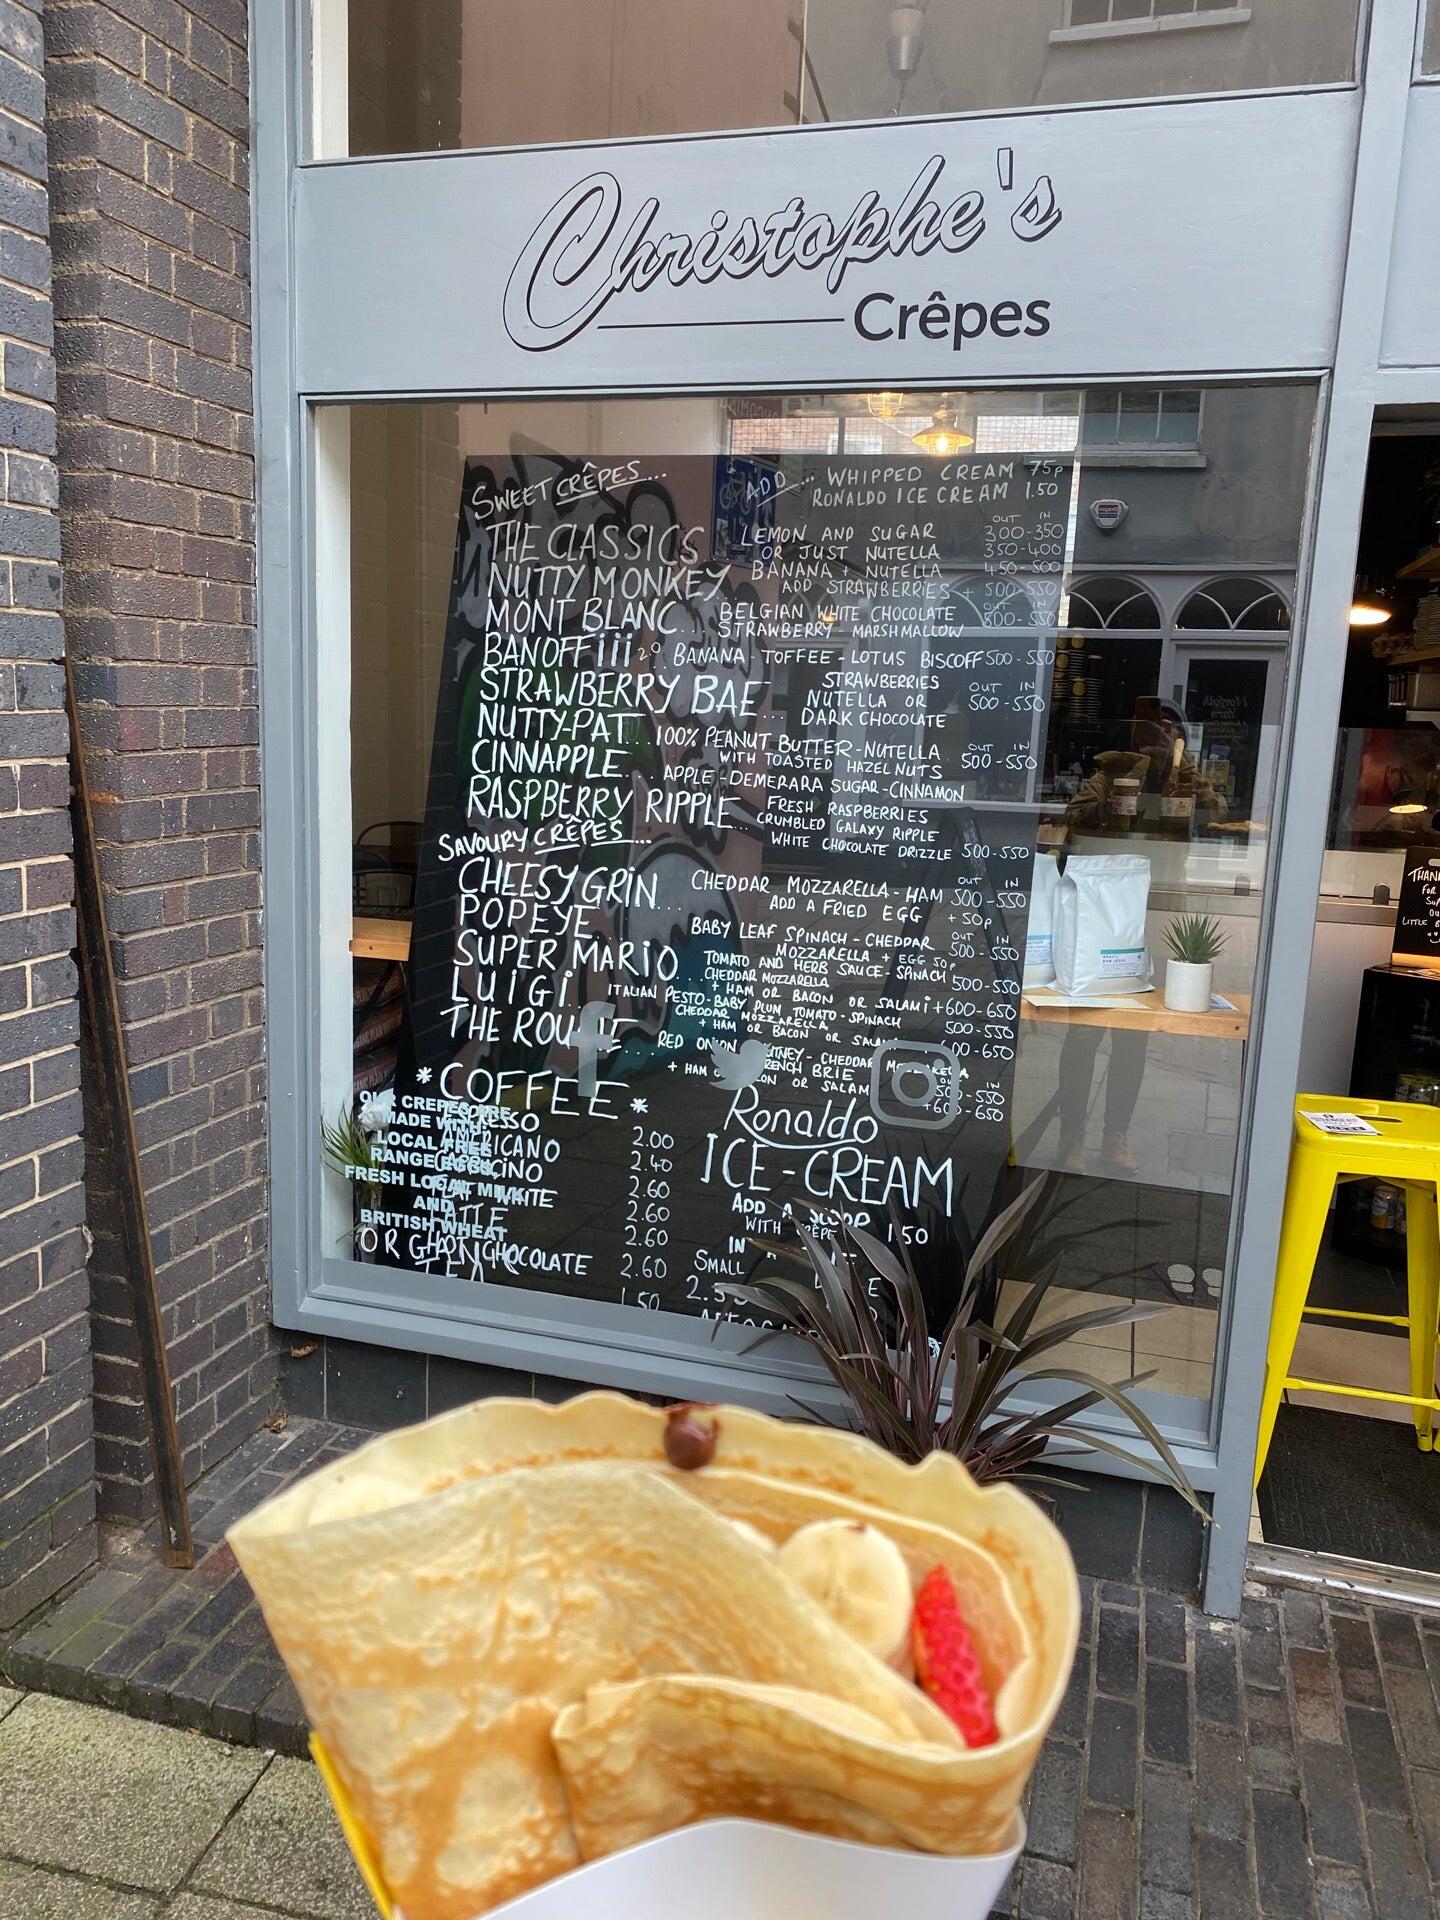 Christophe's
Crêpes
SWEET CRÊPES...
ADD... WHIPPED CREAM 75p
RONALDO ICE CREAM 1.50
OUT IN
THE CLASSICS LEMON AND SUGAR 300-350
OR JUST NUTELLA 350-400
NUTTY MONKEY... BANANA + NUTELLA 450-500
ADD STRAWBERRIES + 500-550
OUT IN
MONT BLANC... BELGIAN WHITE CHOCOLATE 500-550
STRAWBERRY - MARSHMALLOW
BANOFFiii 2.0 BANANA - TOFFEE - LOTUS BISCOFF 500-550
STRAWBERRY BAE... STRAWBERRIES
NUTELLA OR
DARK CHOCOLATE
OUT IN
500-550
NUTTY-PAT...100% PEANUT BUTTER - NUTELLA
WITH TOASTED HAZELNUTS
OUT IN
500-550
CINNAPPLE... APPLE - DEMERARA SUGAR - CINNAMON
RASPBERRY RIPPLE... FRESH RASPBERRIES
CRUMBLED GALAXY RIPPLE
WHITE CHOCOLATE DRIZZLE 500-550
SAVOURY CRÊPES...
OUT IN
CHEESY GRiN... CHEDDAR MOZZARELLA - HAM 500-550
ADD A FRIED EGG +50p
POPEYE BABY LEAF SPINACH - CHEDDAR
MOZZARELLA + EGG 50p
OUT IN
500-550
SUPER MARiO... TOMATO AND HERB SAUCE - SPINACH
CHEDDAR MOZZARELLA 500-550
+ HAM OR BACON OR SALAMi +600-650
LUiGi... ITALIAN PESTO - BABY PLUM TOMATO - SPINACH
CHEDDAR MOZZARELLA 500-550
+ HAM OR BACON OR 600-650
THE ... RED ONION CHEDDAR MOZZARELLA
FRENCH BRIE
+ HAM OR SALAM
IN
500-550
+600-650
*COFFEE*
ESPRESSO 2.00
AMERICANO 2.40
CAPPUCCINO 2.60
FLAT WHITE 2.60
LATTE 2.60
HOT CHOCOLATE 2.60
TEA 1.50
OUR CREPES ARE
MADE WITH:
LOCAL FREE
RANGE EGGS,
FRESH LOCAL MILK
AND
BRITISH WHEAT
Ronaldo
ICE-CREAM
ADD A SCOOP
WITH CRÊPE 1.50
IN A
SMALL
2.50
THANK
FOR
LITTLE